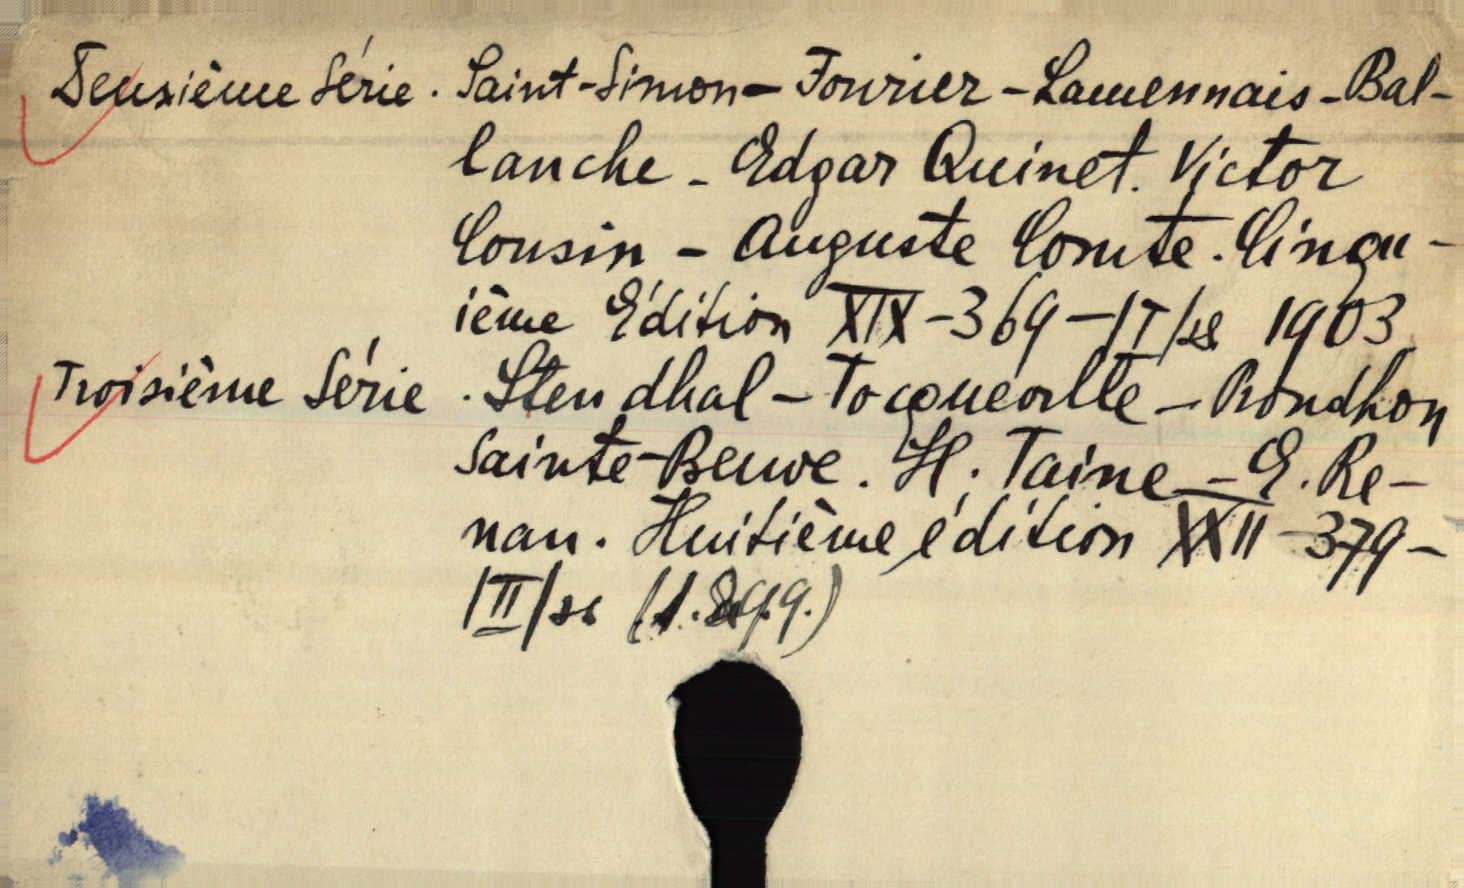 Deuxième Série. Saint-Simon - Fourier - Lamennais - Bal-
lanche - Edgar Quinet. Victor
Cousin - Auguste Comte. Cinqu-
ième Edition XIX - 369 - /I/ss 1903
Troisième Série. Stendhal - Tocqueville - Proudhon
Sainte-Beuve. H. Taine - E. Re-
nan. Huitième édition XXII - 379 -
/II/ss (1.899.)